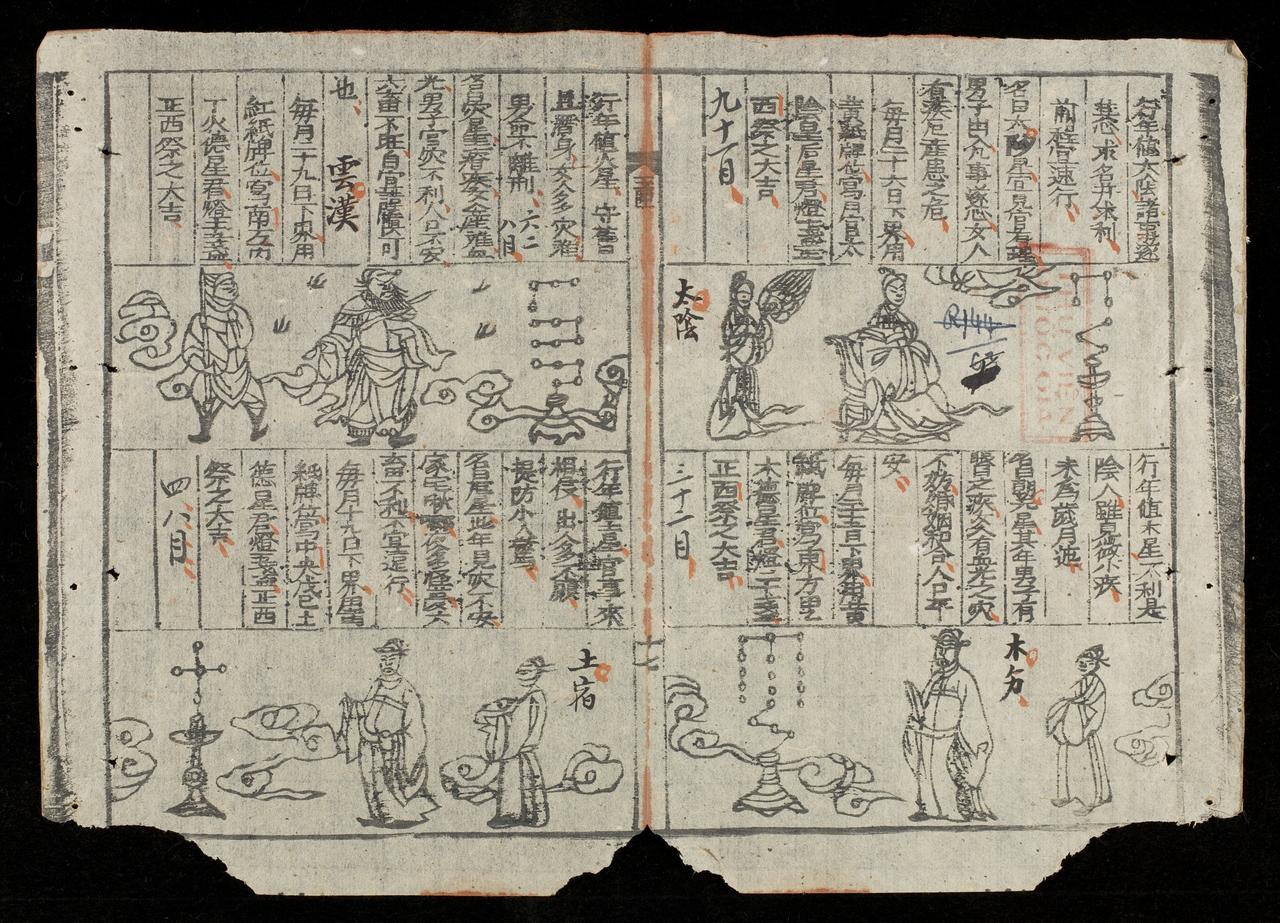 行年値太陰諸事遂
其志求名并求利
前程督速行
名曰太陰星宜見官理
男子由凡事遂志女人
有災厄産患之危
每月二十六日下界用
黄紙牌位寫月宫太
陰皇后星君燈七盞正
西祭之大吉
九十一月
太陰
R144
行年値木星不利是
陰人雖見微小疾
未為歲月迍
名朝見星其年男子有
腎之疾女有血光之灾
不妨婚姻和合人口平
安
每月二十五日下界用黄
紙牌位寫東方甲乙
木德星君燈二十盞
正西祭之大吉
三十一月
木夯
行年値火星守舊
且暦身女人多灾難
男命不離刑
六二
八月
名灾星主瘡疾女産難血
光男子官灾不利人口不安
六畜不旺自宜謹慎可
也
雲漢
每月二十九日下界用
紅紙牌位寫南方丙
丁火德星君燈十五盞
正西祭之大吉
行年鎮土星官事來
相侵出入多不願
提防小人
名土星此年見灾不安
家宅
畜不利不宜遠行
每月十九日下界用黄
紙牌位寫中央戊己土
德星君燈五盞正西
祭之大吉
四八月
土宿
THƯ VIỆN
QUỐC GIA